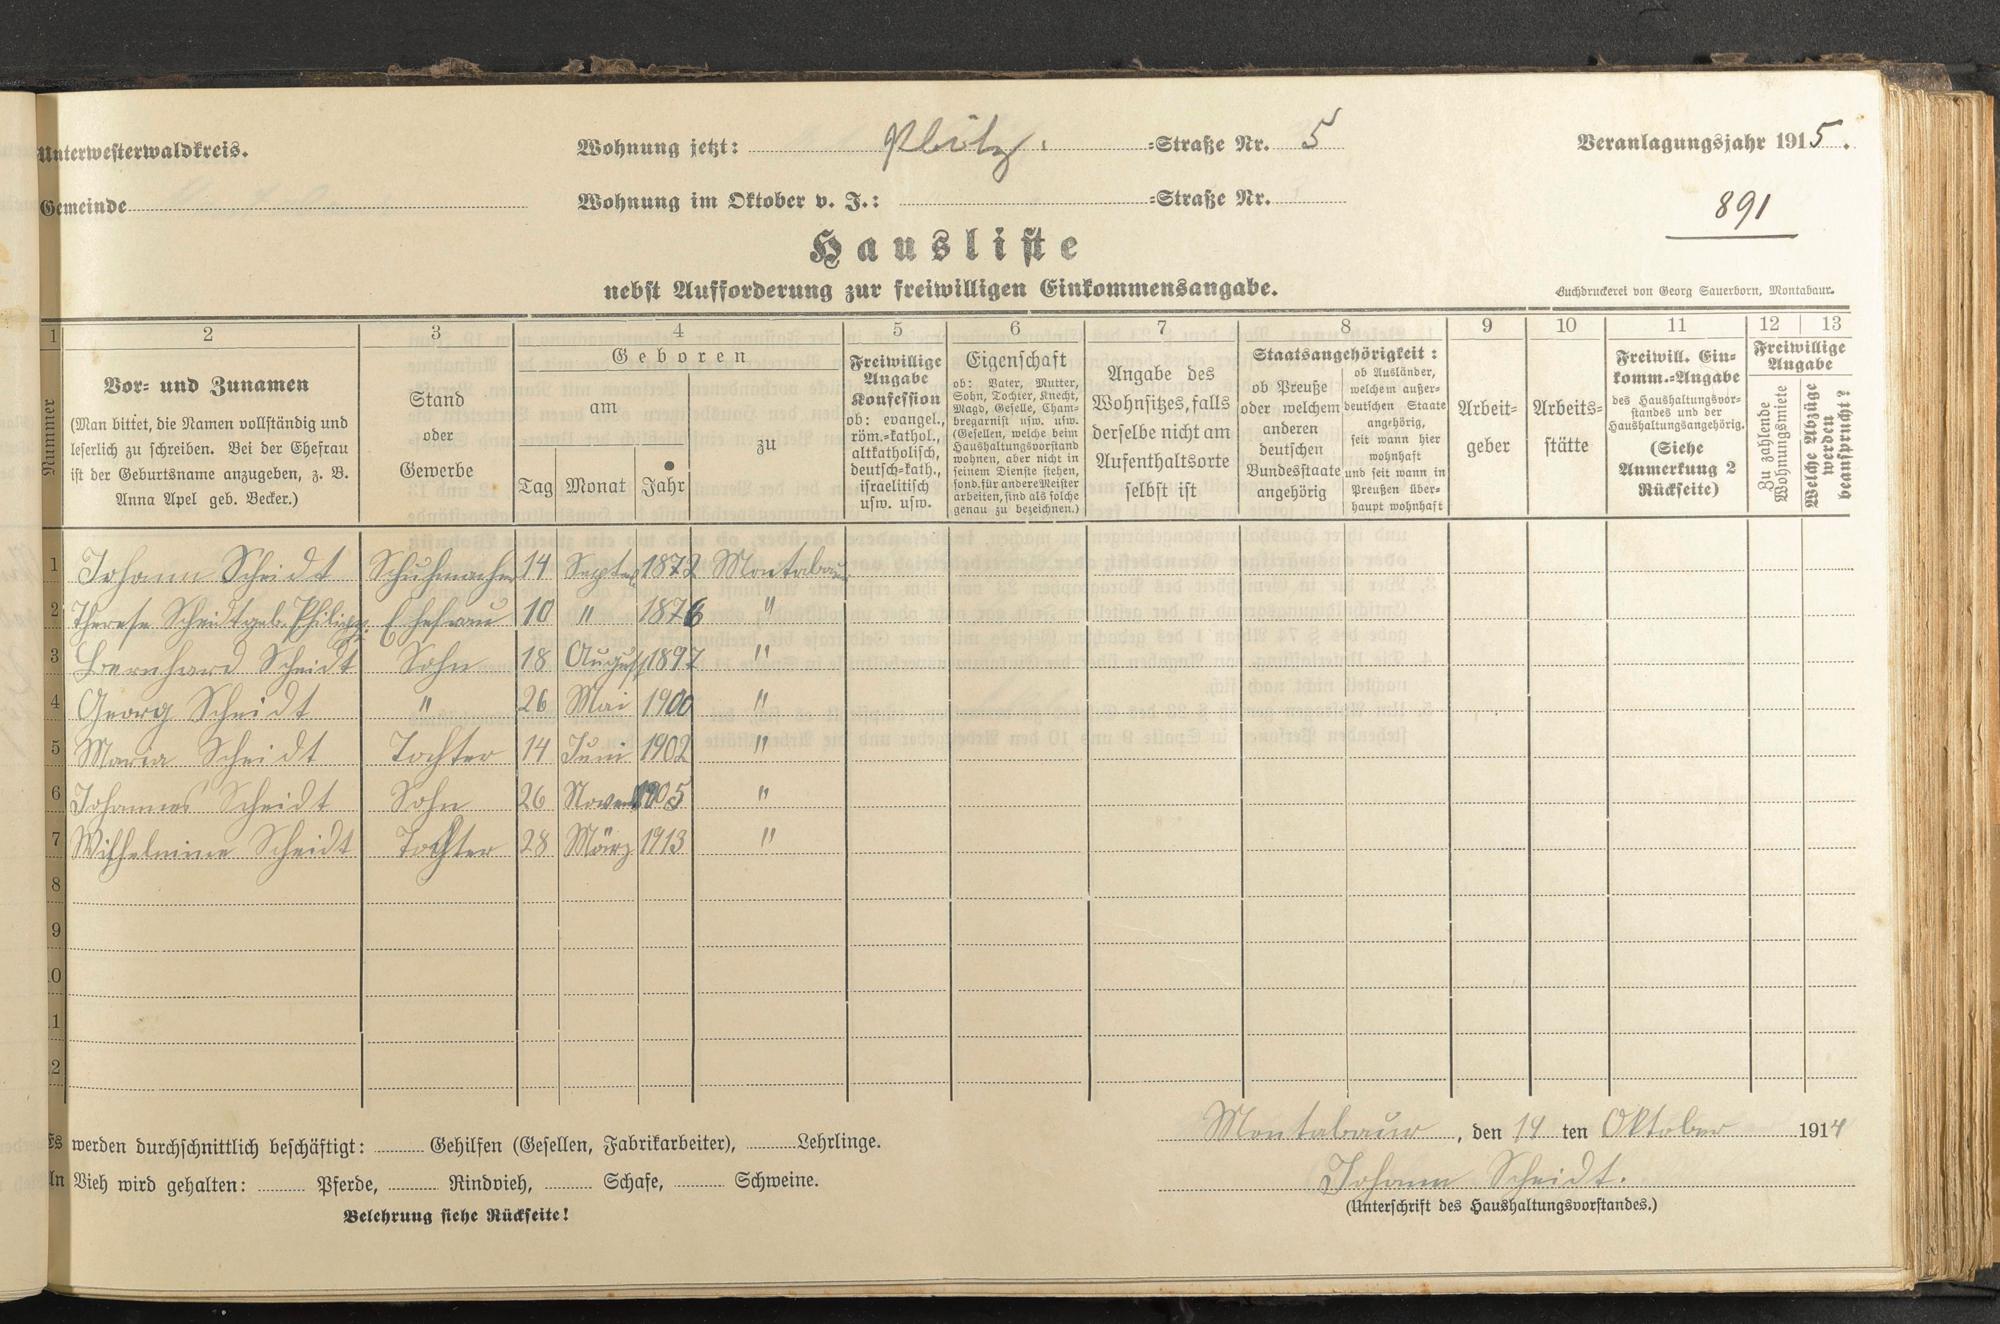 Unterwesterwaldkreis.
Wohnung jetzt: Plötz. =Straße Nr. 5
Veranlagungsjahr 1915.
Gemeinde
Wohnung im Oktober v. J.: =Straße Nr.
891
Hausliste
nebst Aufforderung zur freiwilligen Einkommensangabe.
Buchdruckerei von Georg Sauerborn, Montabaur.
1 2 3 4 5 6 7 8 9 10 11 12 13
Nummer
Vor- und Zunamen
(Man bittet, die Namen vollständig und
leserlich zu schreiben. Bei der Ehefrau
ist der Geburtsname anzugeben, z. B.
Anna Apel geb. Becker.)
Stand
oder
Gewerbe
Geboren
am
Tag Monat Jahr
zu
Freiwillige
Angabe
Konfession
ob: evangel.,
röm.-kathol.,
altkatholisch,
deutsch-kath.,
israelitisch
usw. usw.
Eigenschaft
ob: Vater, Mutter,
Sohn, Tochter, Knecht,
Magd, Geselle, Cham-
bregarnist usw. usw.
(Gesellen, welche beim
Haushaltungsvorstand
wohnen, aber nicht in
seinem Dienste stehen,
sond. für andere Meister
arbeiten, sind als solche
genau zu bezeichnen.)
Angabe des
Wohnsitzes, falls
derselbe nicht am
Aufenthaltsorte
selbst ist
Staatsangehörigkeit:
ob Preuße
oder welchem
anderen
deutschen
Bundesstaate
angehörig
ob Ausländer,
welchem außer-
deutschen Staate
angehörig,
seit wann hier
wohnhaft
und seit wann in
Preußen über-
haupt wohnhaft
Arbeit-
geber
Arbeits-
stätte
Freiwill. Ein-
komm.-Angabe
des Haushaltungsvor-
standes und der
Haushaltungsangehörig.
(Siehe
Anmerkung 2
Rückseite)
Freiwillige
Angabe
Zu zahlende
Wohnungsmiete
Welche Abzüge
werden
beansprucht?
1 Johann Scheidt Schuhmacher 14 Septem 1872 Montabaur
2 Therese Scheidt geb. Philippi Ehefrau 10 " 1876 "
3 Bernhard Scheidt Sohn 18 August 1897 "
4 Georg Scheidt " 26 Mai 1900 "
5 Maria Scheidt Tochter 14 Juni 1902 "
6 Johannes Scheidt Sohn 26 Novem 1905 "
7 Wilhelmine Scheidt Tochter 28 März 1913 "
8
9
10
11
12
Es werden durchschnittlich beschäftigt: Gehilfen (Gesellen, Fabrikarbeiter), Lehrlinge.
An Vieh wird gehalten: Pferde, Rindvieh, Schafe, Schweine.
Belehrung siehe Rückseite!
Montabaur, den 14 ten Oktober 1914
Johann Scheidt.
(Unterschrift des Haushaltungsvorstandes.)